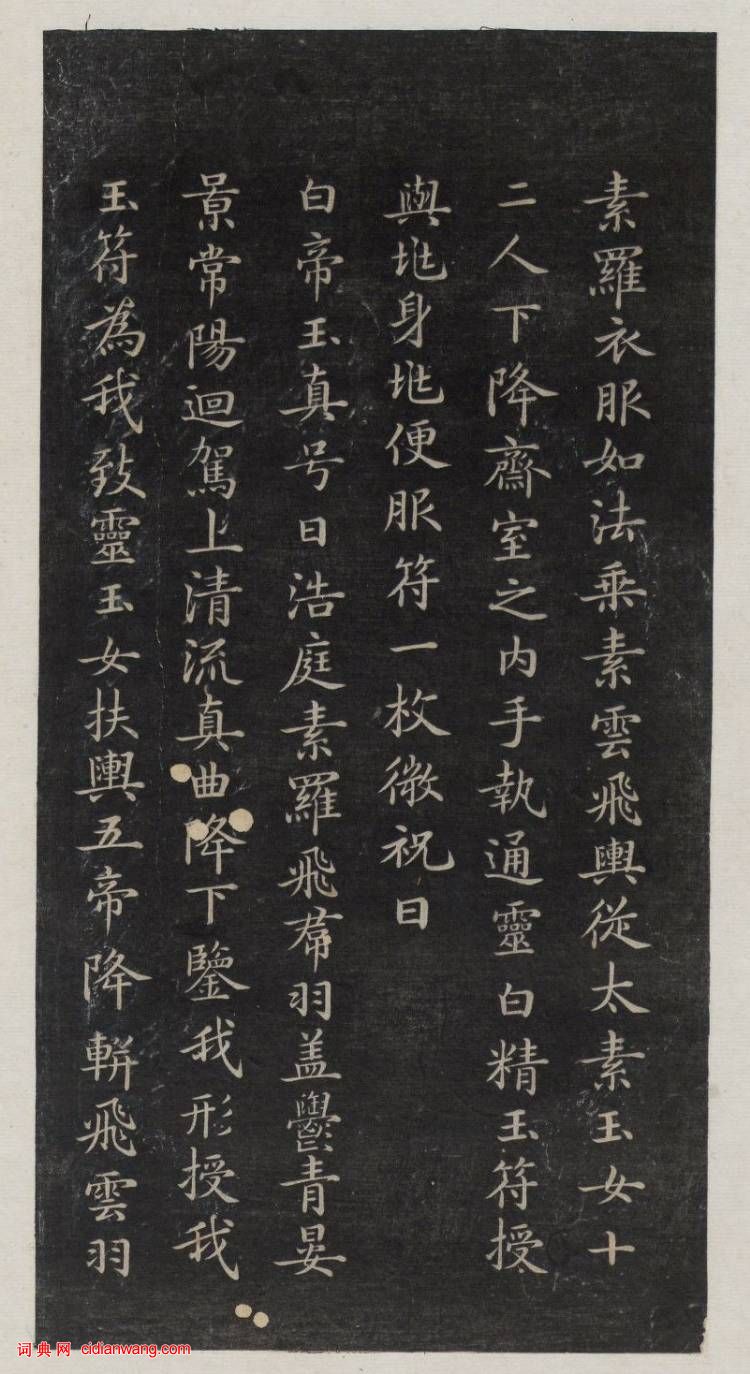 素羅衣服如法乘素雲飛輿從太素玉女十
二人下降齋室之内手執通靈白精玉符授
與垗身垗便服符一枚微祝曰
白帝玉真号曰浩庭素羅飛帬羽盖鬱青晏
景常陽迴駕上清流真曲降下鑒我形授我
玉符為我致靈玉女扶輿五帝降軿飛雲羽
词典网 cidianwang.com